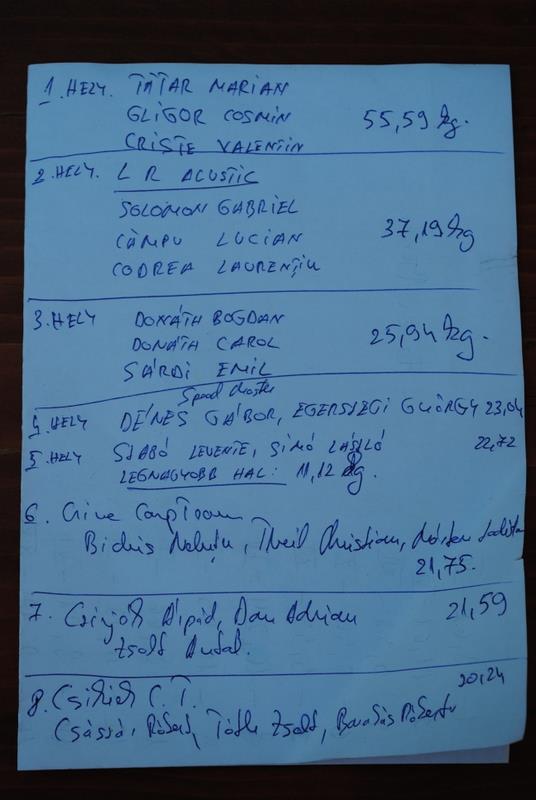 1. HELY. TĂTAR MARIAN
GLIGOR COSMIN 55,59 kg.
CRISTE VALENTIN
2. HELY. L R ACUSTIC
SOLOMON GABRIEL
CÂMPU LUCIAN 37,19 kg
CODREA LAURENȚIU
3. HELY DONÁTH BOGDAN
DONÁTH CAROL 25,94 kg.
SÁRDI EMIL
HELY DÉNES GÁBOR, EGERSZEGI GYÖRGY 23,04
5 HELY SZABÓ LEVENTE, SIMÓ LÁSZLÓ 22,72
LEGNAGYOBB HAL: 11,12 kg.
6. Team
Christian,
21,75.
7. Árpád, Dan Adrian 21,59
Zsolt
8. C.T. 20,24
Róbert, Tóth Zsolt,